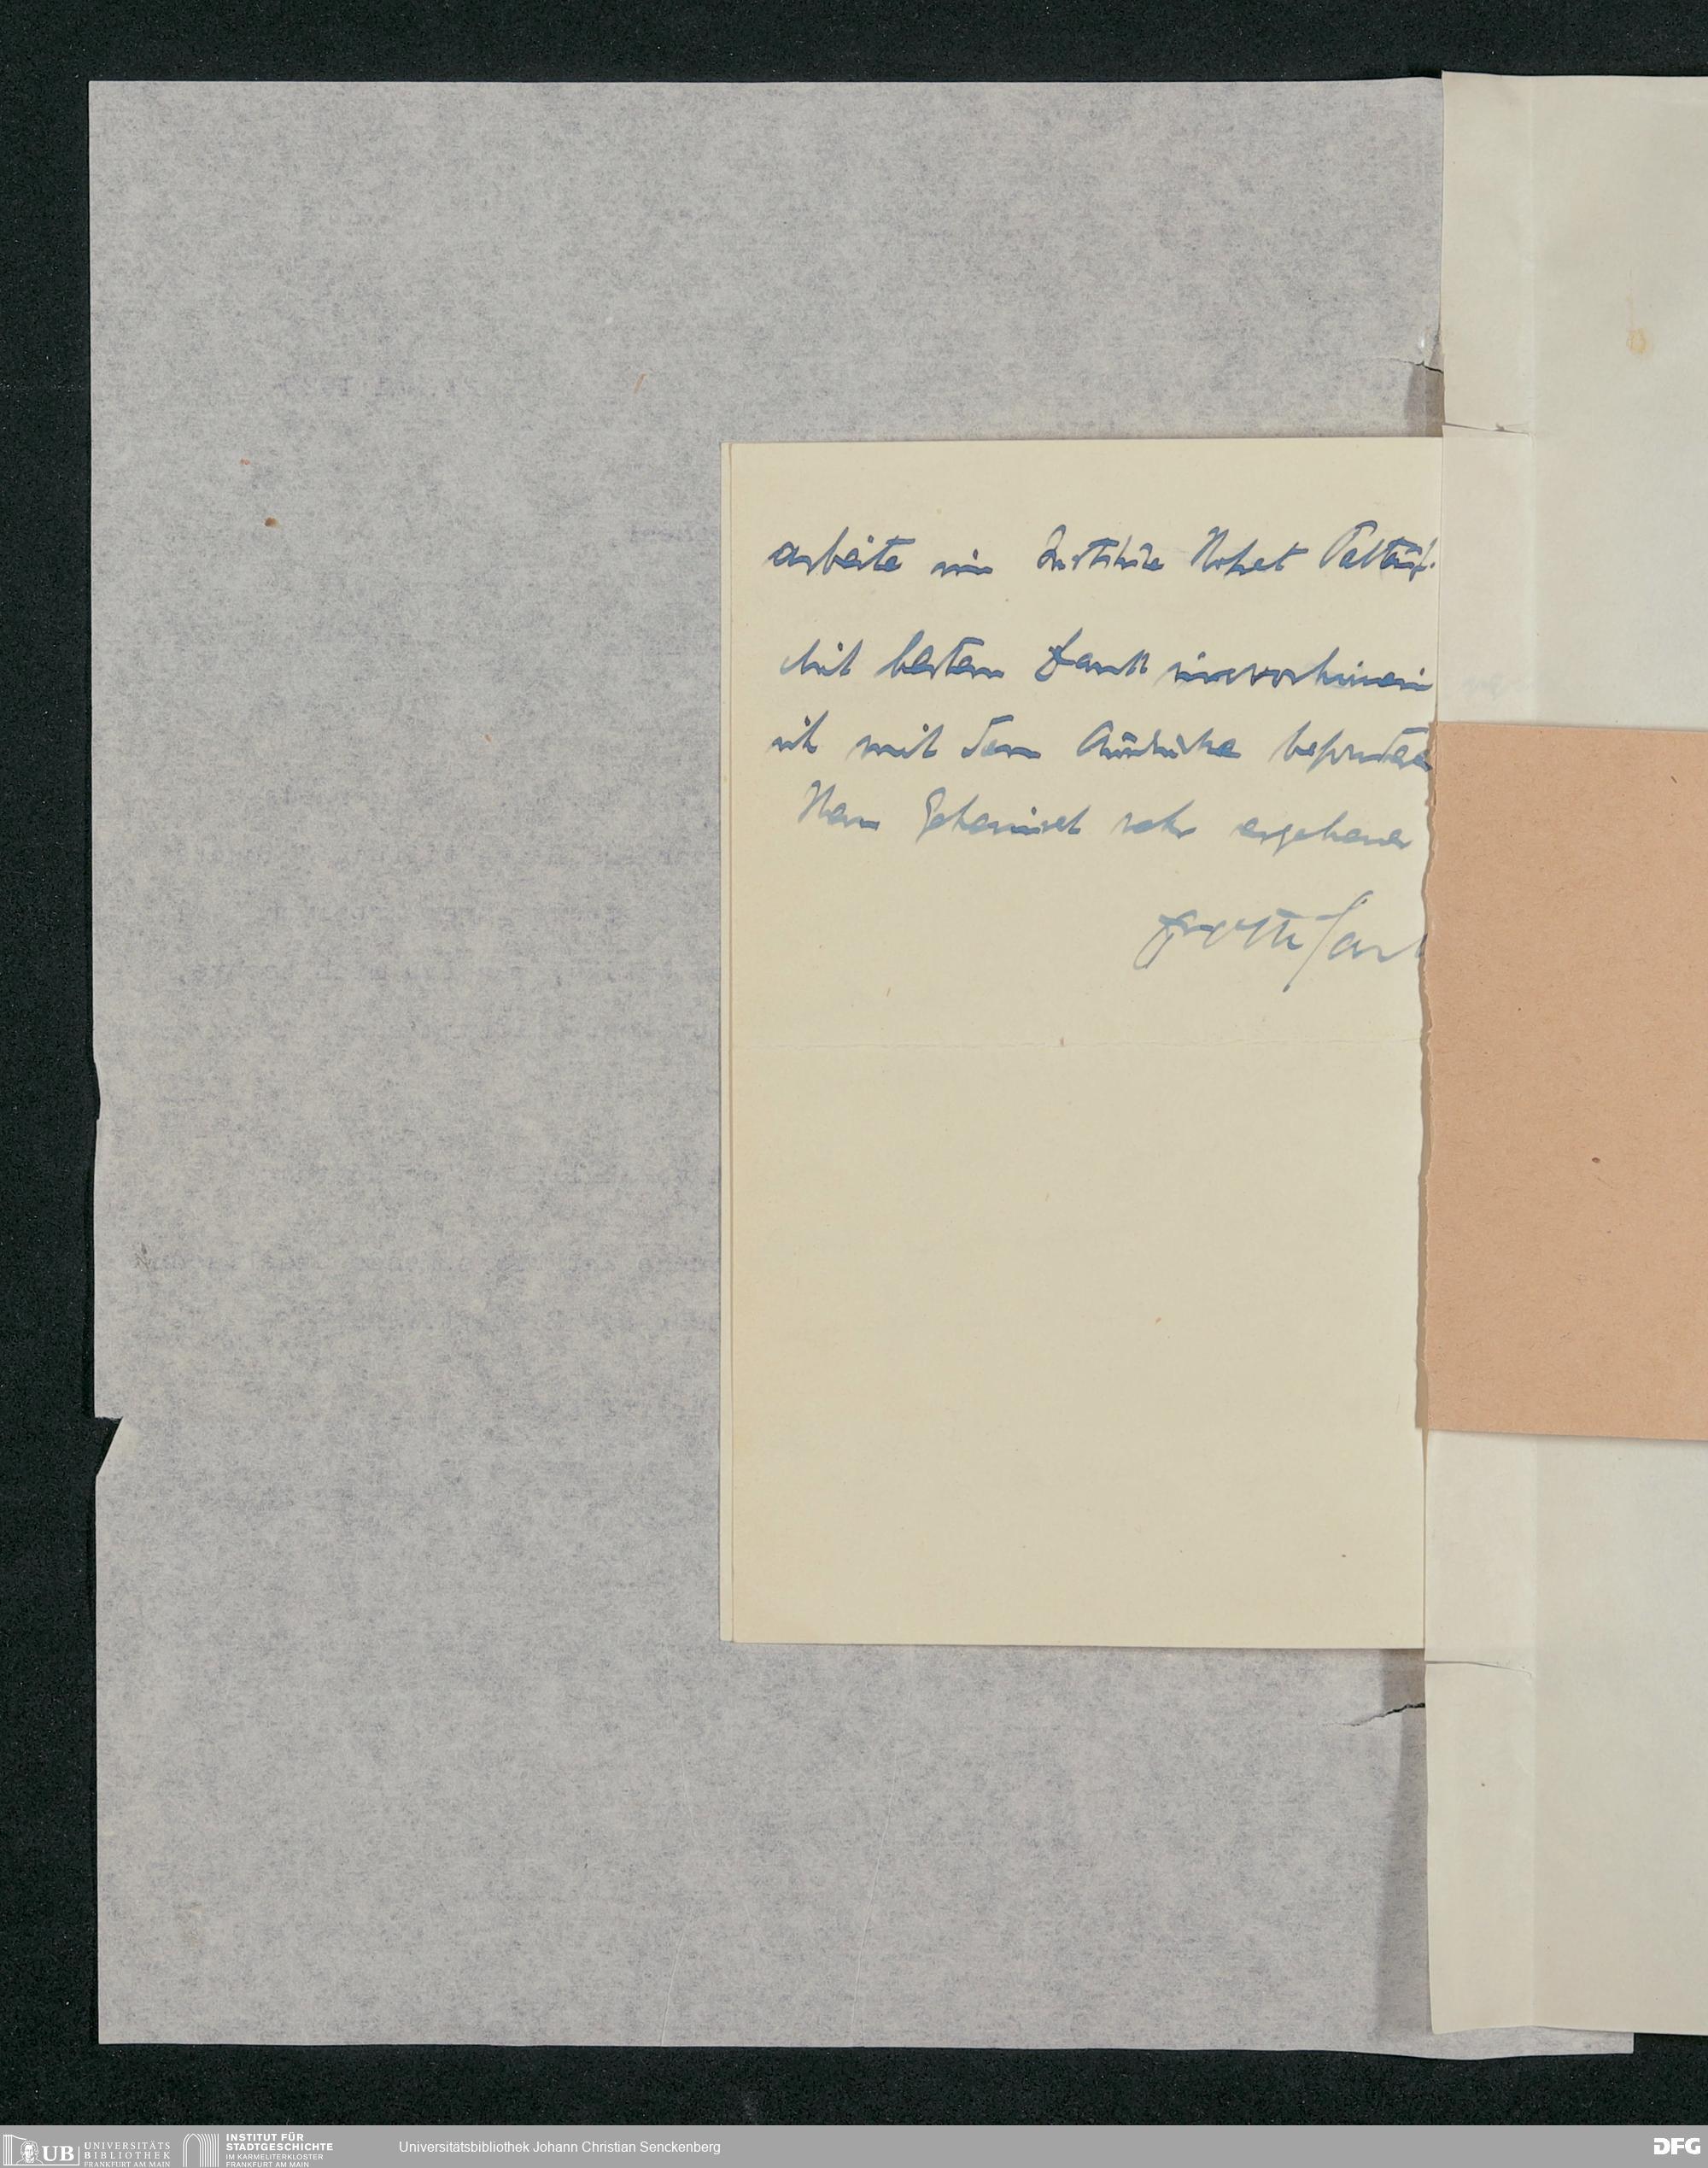 arbeite im Institute Hofrat Paltauf.
Mit bestem Dank im vorhinein
ich mit dem Ausdrucke besonderer
Herrn Geheimrat sehr ergebener
UB UNIVERSITÄTS BIBLIOTHEK FRANKFURT AM MAIN
INSTITUT FÜR STADTGESCHICHTE IM KARMELITERKLOSTER FRANKFURT AM MAIN
Universitätsbibliothek Johann Christian Senckenberg
DFG